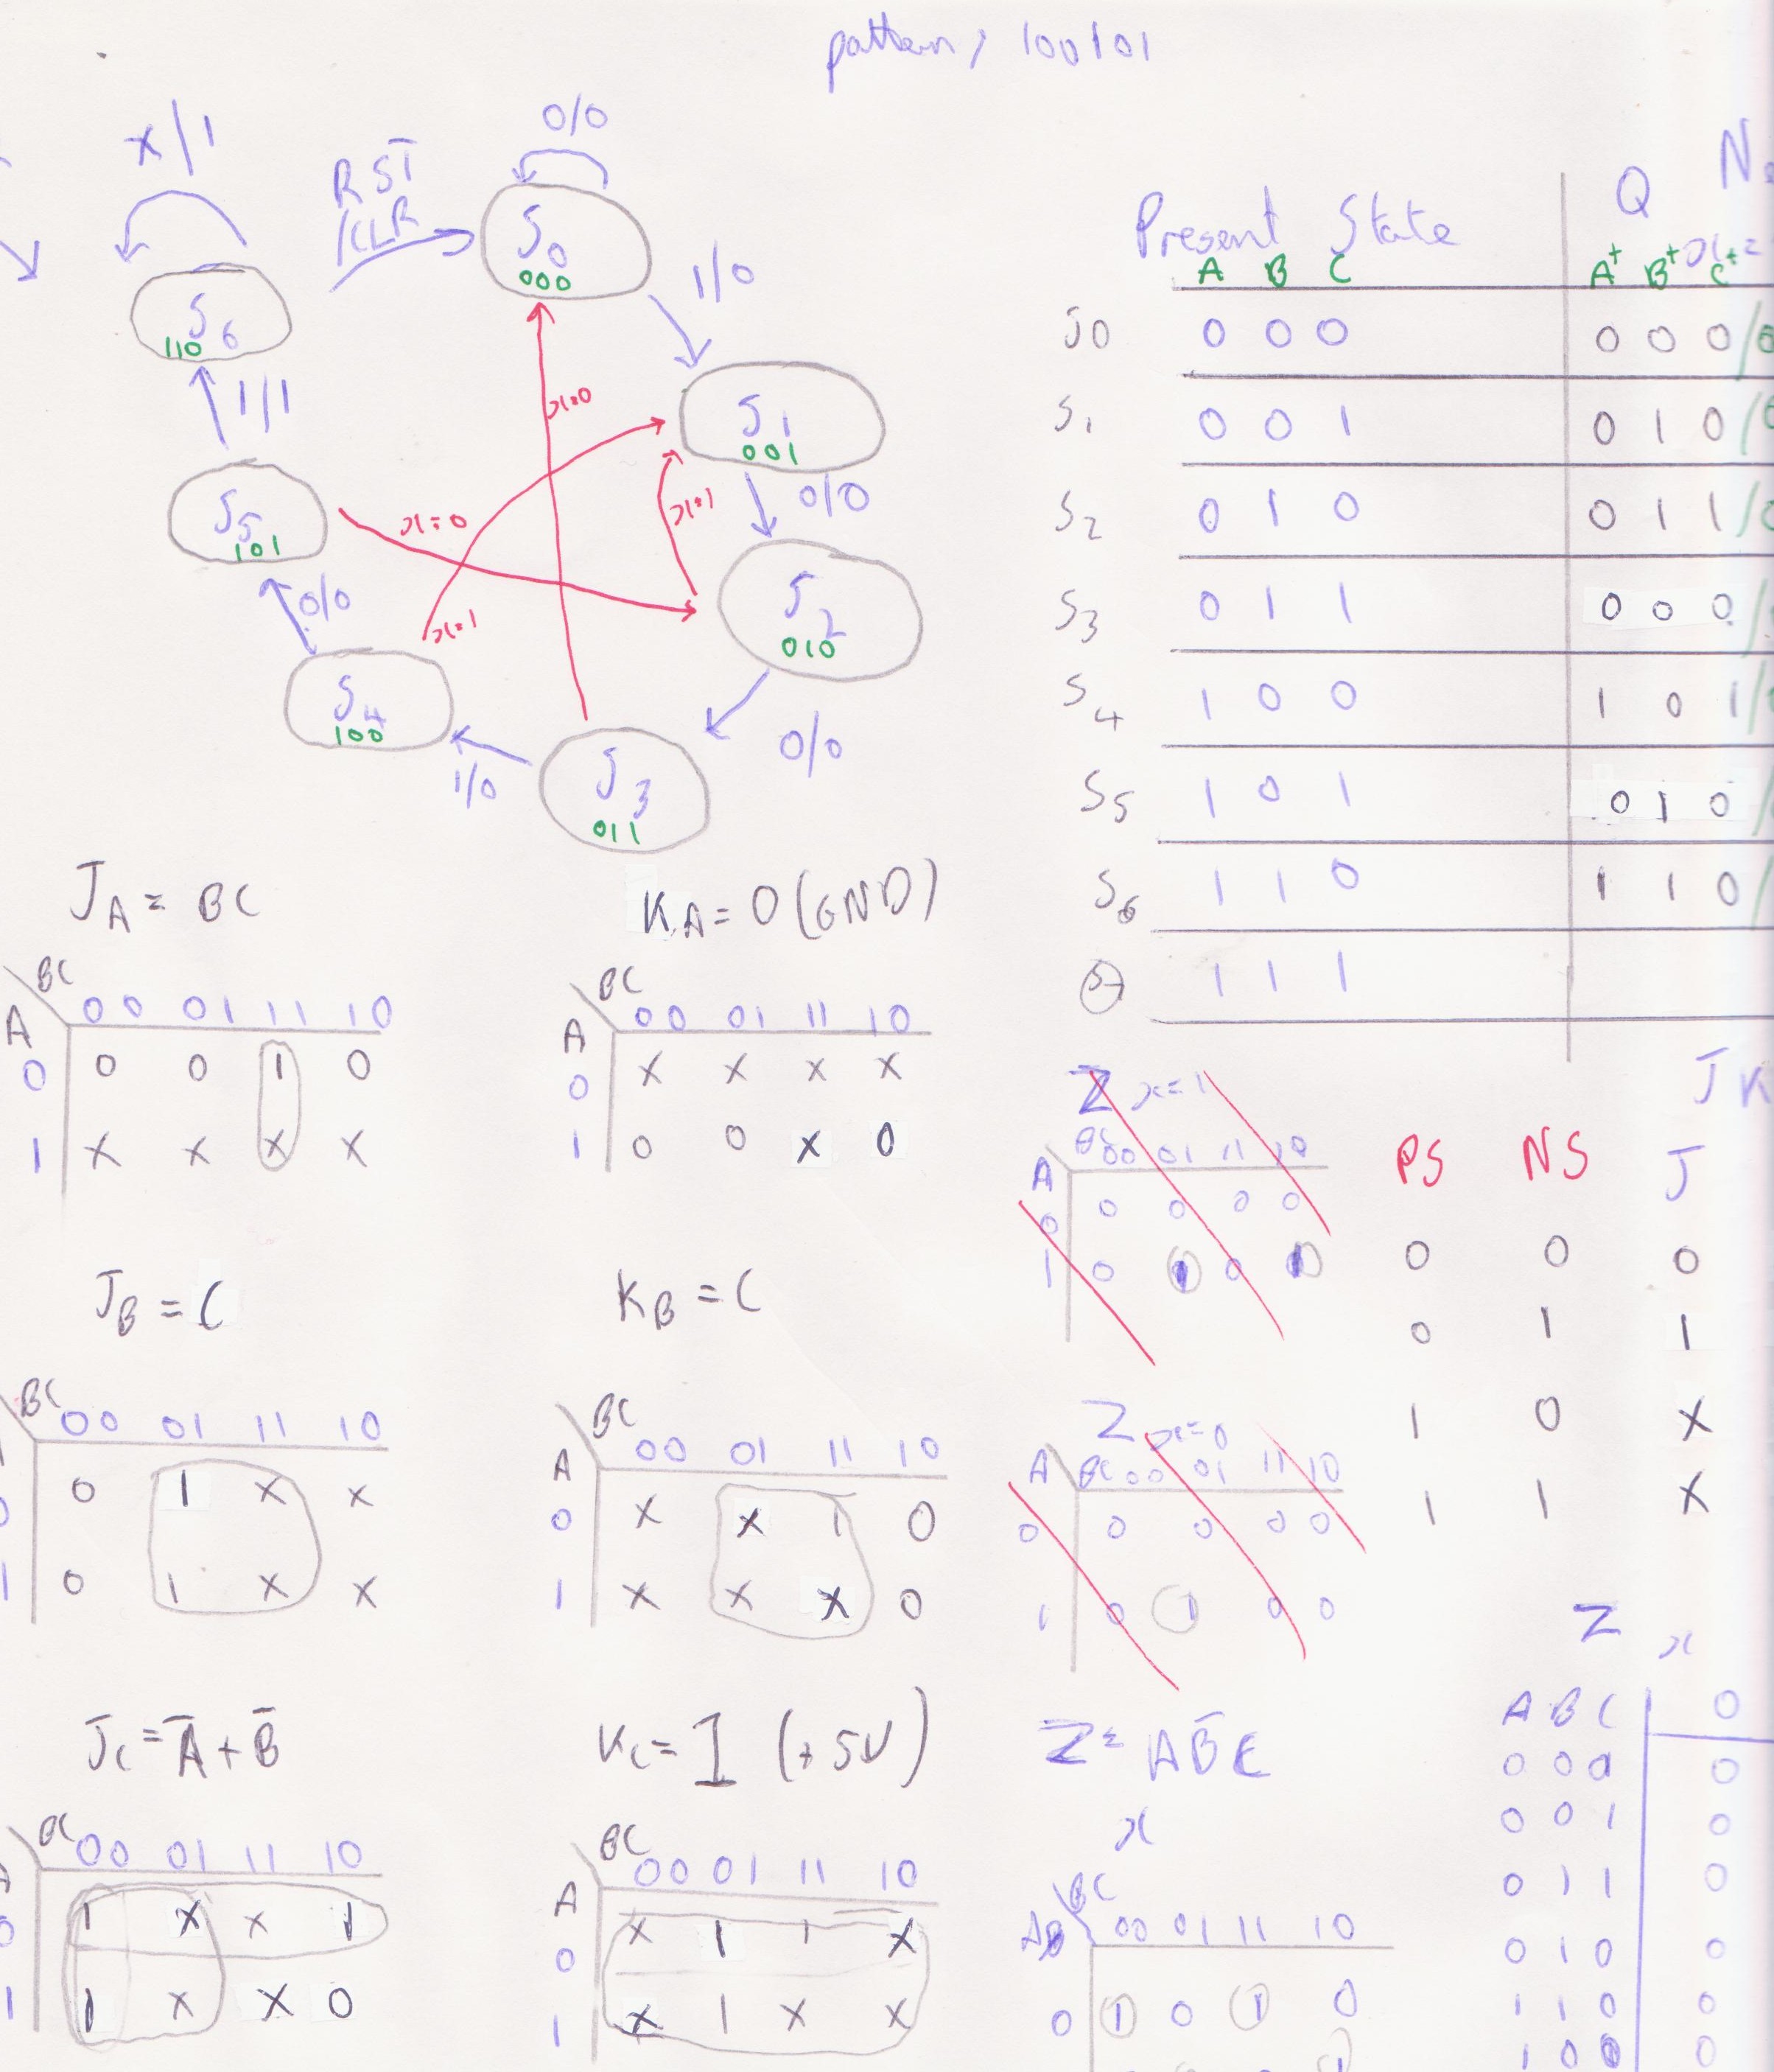 pattern, 100101
x/1
RST
/CLR
0/0
S0
000
1/0
S1
001
0/0
S2
010
0/0
S3
011
1/0
S4
100
0/0
S5
101
1/1
S6
110
x=0
x=1
x=0
x=1
Present State
Q
A B C
A+ B+ C+
S0 0 0 0 0 0 0/0
S1 0 0 1 0 1 0/0
S2 0 1 0 0 1 1/0
S3 0 1 1 0 0 0/
S4 1 0 0 1 0 1/
S5 1 0 1 0 1 0/
S6 1 1 0 1 1 0/
S7 1 1 1
JA = BC
BC
A 00 01 11 10
0 0 0 1 0
1 X X X X
KA = 0 (GND)
BC
A 00 01 11 10
0 X X X X
1 0 0 X 0
JB = C
BC
00 01 11 10
0 0 1 X X
1 0 1 X X
KB = C
BC
A 00 01 11 10
0 X X 1 0
1 X X X 0
JC = A̅ + B̅
BC
A 00 01 11 10
0 1 X X 1
1 1 X X 0
KC = 1 (+5V)
BC
A 00 01 11 10
0 X 1 1 X
1 X 1 X X
Z x=1
BC
A 00 01 11 10
0 0 0 0 0
1 0 1 0 1
Z x=0
A BC 00 01 11 10
0 0 0 0 0
1 0 1 0 0
Z = A B̅ C
x
BC
00 01 11 10
0 1 0 1 0
JK
PS NS J
0 0 0
0 1 1
1 0 X
1 1 X
Z x
A B C 0
0 0 0 0
0 0 1 0
0 1 1 0
0 1 0 0
1 1 0 0
1 0 0 0